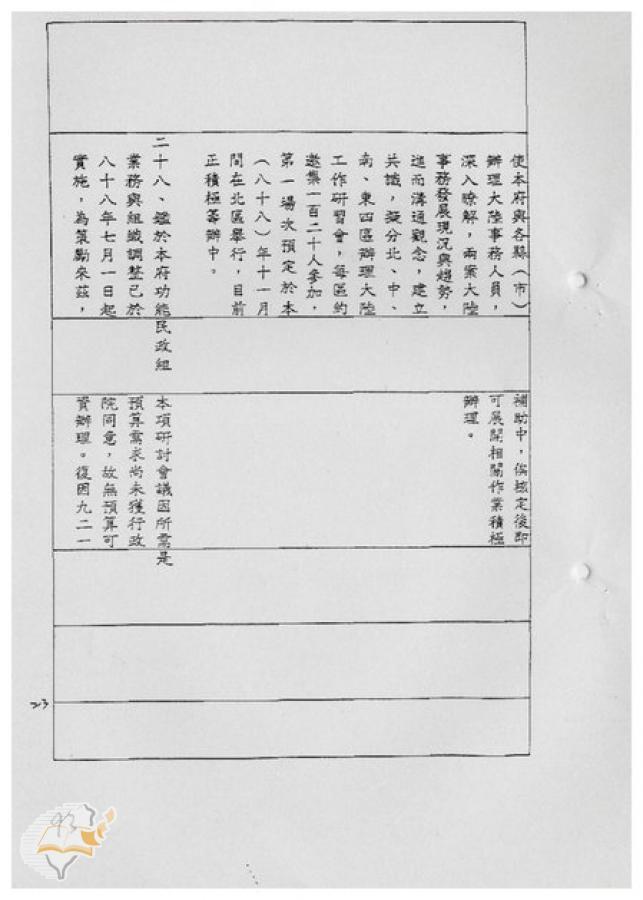 使本府與各縣（市）
辦理大陸事務人員，
深入瞭解，兩案大陸
事務發展現況與趨勢，
進而溝通觀念，建立
共識，擬分北、中、
南、東四區辦理大陸
工作研習會，每區約
邀集一百二十人參加，
第一場次預定於本
（八十八）年十一月
間在北區舉行，目前
正積極籌辦中。
二十八、鑑於本府功能
業務與組織調整已於
八十八年七月一日起
實施，為策勵來茲，
民政組
補助中，俟核定後即
可展開相關作業積極
辦理。
本項研討會議因所需是
預算需求尚未獲行政
院同意，故無預算可
資辦理。復因九二一
23